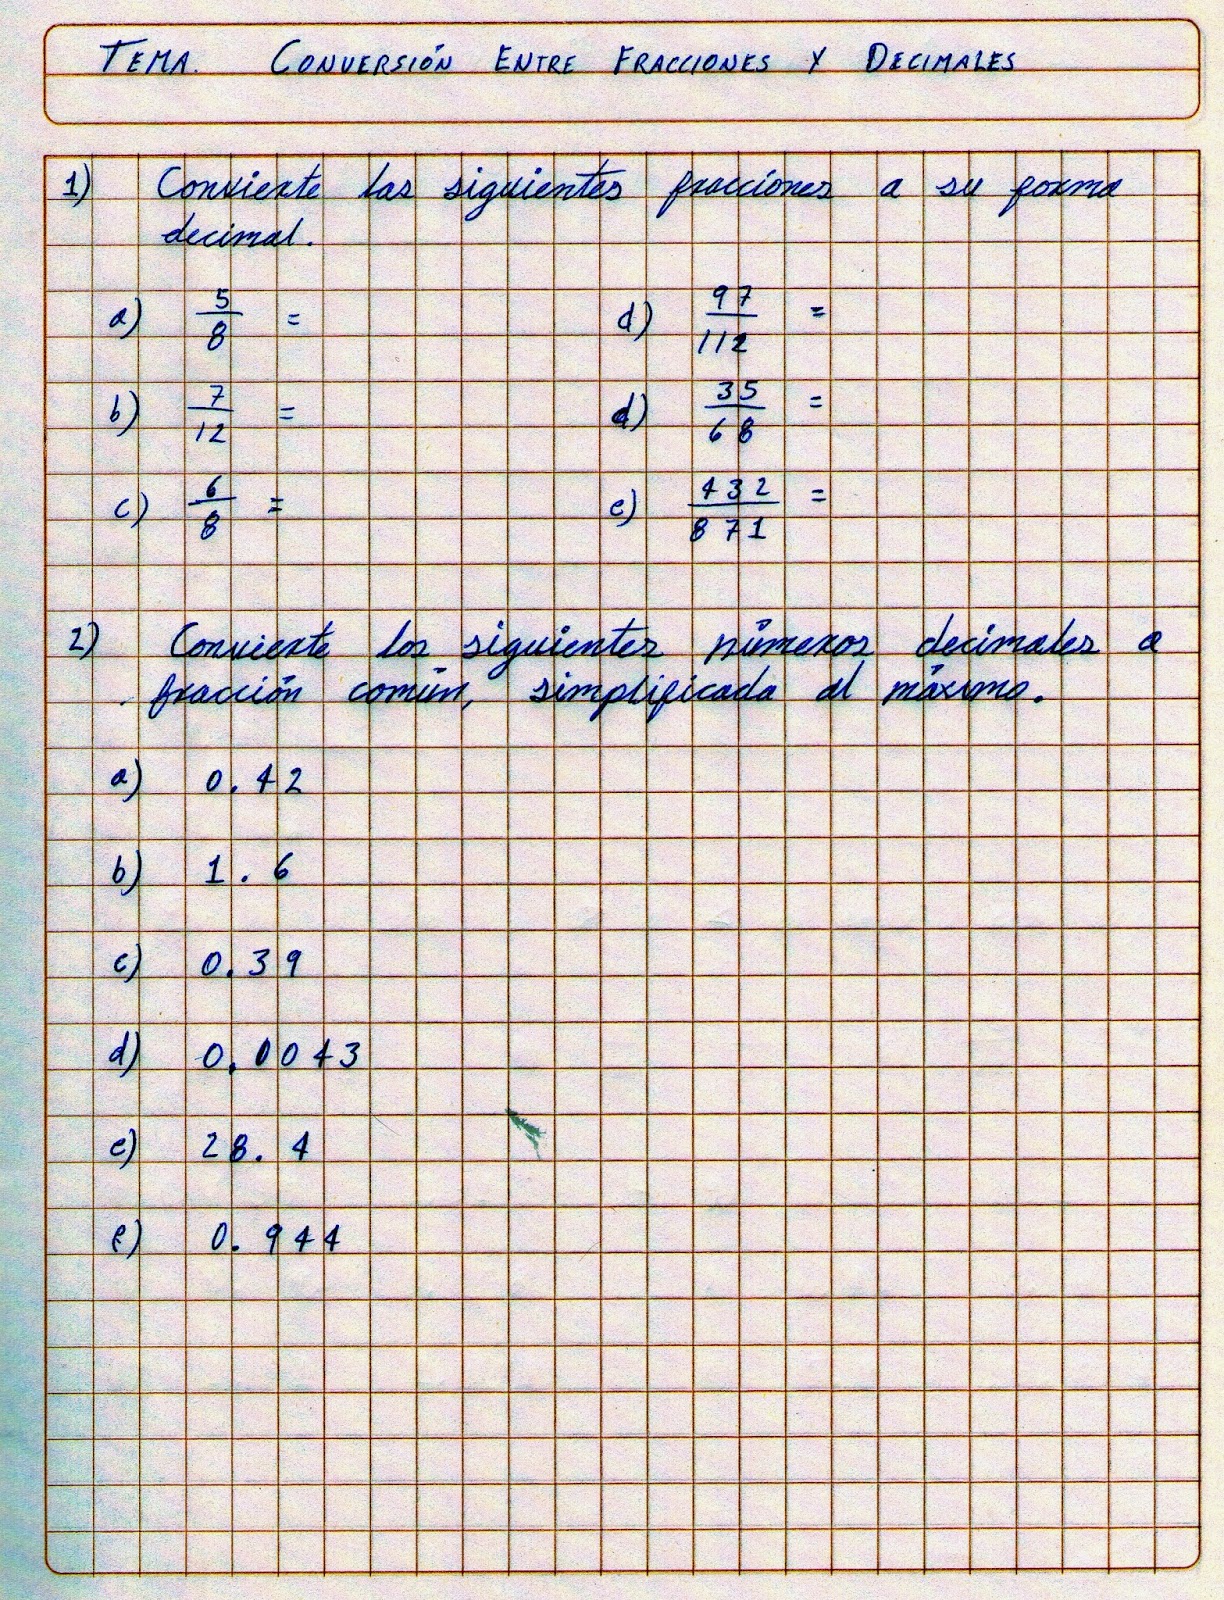 TEMA. CONVERSIÓN ENTRE FRACCIONES Y DECIMALES
1) Convierte las siguientes fracciones a su forma
decimal.
a) 5/8 = d) 97/112 =
b) 7/12 = d) 35/68 =
c) 6/8 = e) 432/871 =
2) Convierte los siguientes números decimales a
fracción común, simplificada al máximo.
a) 0.42
b) 1.6
c) 0.39
d) 0.0043
e) 28.4
f) 0.944